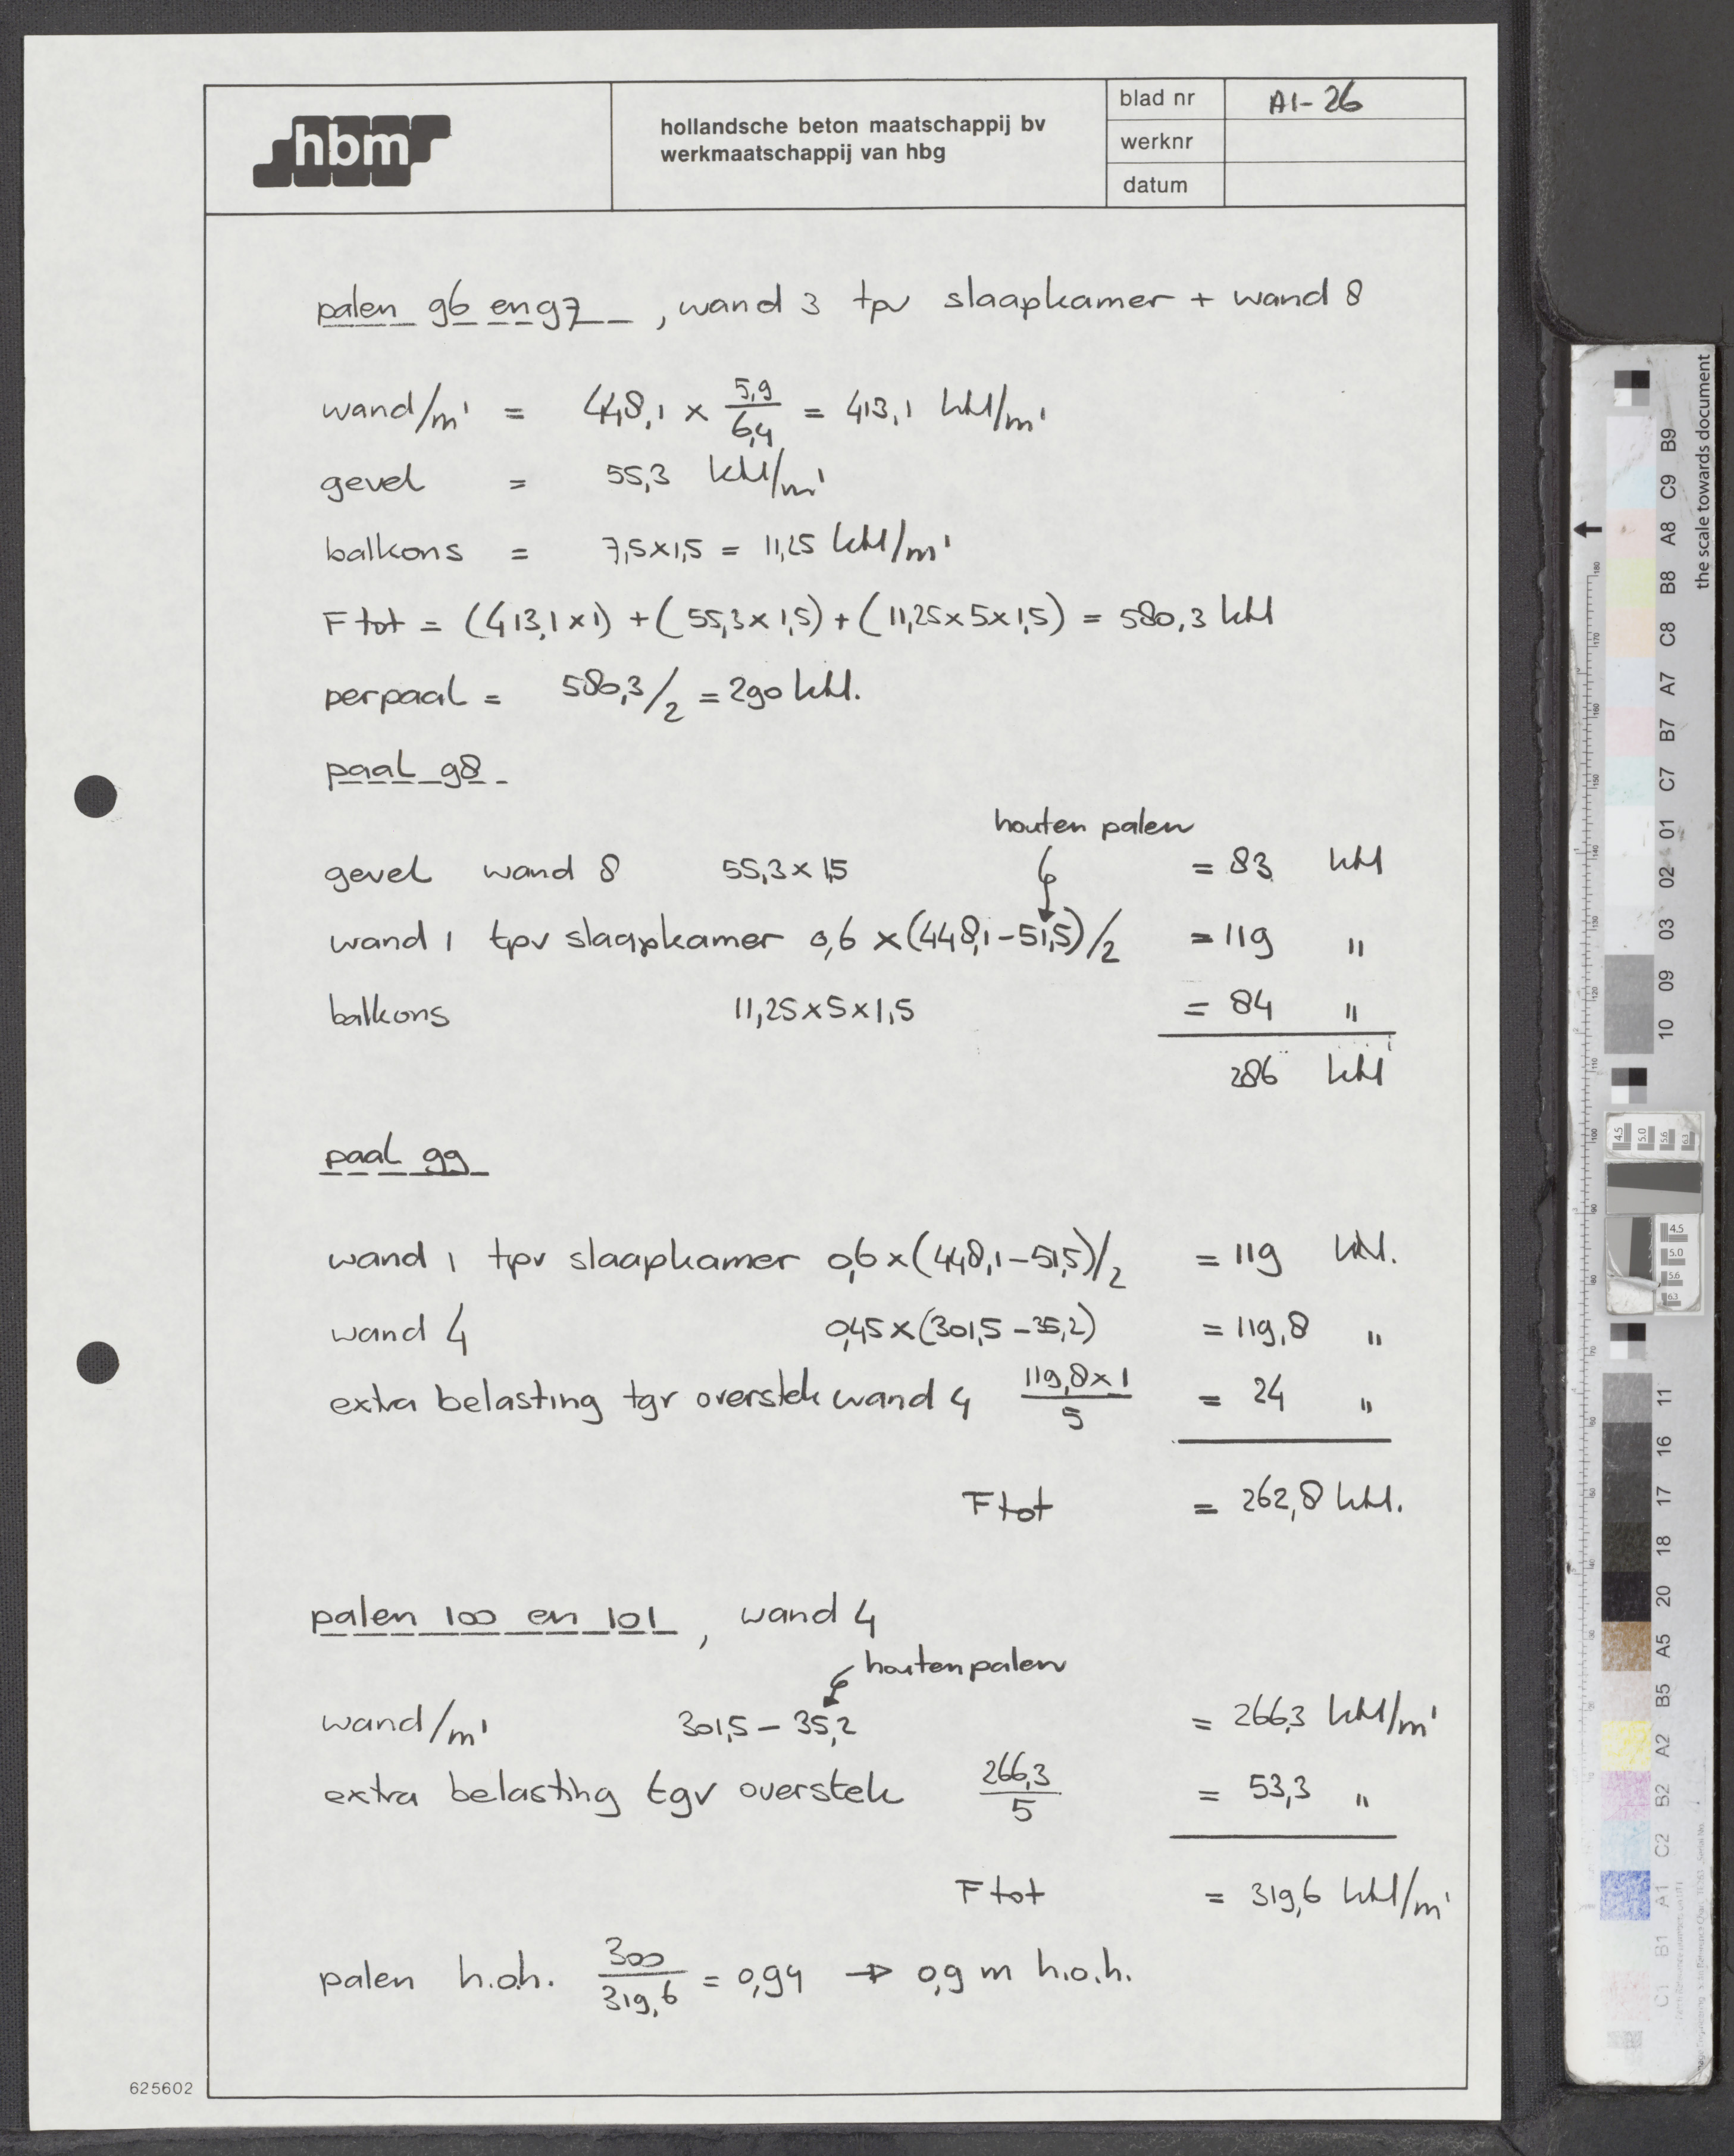 hbm
hollandsche beton maatschappij bv
werkmaatschappij van hbg
blad nr A1-26
werknr
datum
palen 96 en 97, wand 3 tpv slaapkamer + wand 8
wand/m' = 448,1 x 5,9/6,4 = 413,1 kN/m'
gevel = 55,3 kN/m'
balkons = 7,5x1,5 = 11,25 kN/m'
F tot = (413,1x1) + (55,3x1,5) + (11,25x5x1,5) = 580,3 kN
per paal = 580,3/2 = 290 kN.
paal 98
houten palen
gevel wand 8 55,3x1,5 = 83 kN
wand 1 tpv slaapkamer 0,6 x (448,1-51,5)/2 = 119 "
balkons 11,25x5x1,5 = 84 "
286 kN
paal 99
wand 1 tpv slaapkamer 0,6x(448,1-51,5)/2 = 119 kN.
wand 4 0,45x(301,5-35,2) = 119,8 "
extra belasting tgv overstek wand 4 119,8x1/5 = 24 "
F tot = 262,8 kN.
palen 100 en 101, wand 4
houten palen
wand/m' 301,5 - 35,2 = 266,3 kN/m'
extra belasting tgv overstek 266,3/5 = 53,3 "
F tot = 319,6 kN/m'
palen h.o.h. 300/319,6 = 0,94 → 0,9 m h.o.h.
625602
the scale towards document
B9 C9 A8 B8 C8 A7 B7 C7 01 02 03 09 10 11 16 17 18 20 A5 B5 A2 B2 C2 A1 B1 C1